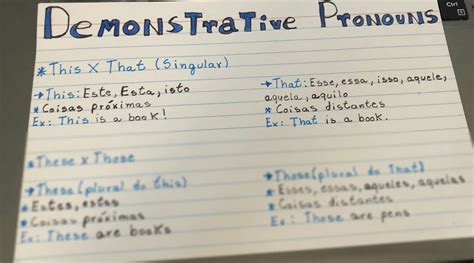 DEMONSTRATIVE PRONOUNS
Ctrl
* This X That (Singular)
→ This: Este, Esta, isto
* Coisas próximas
Ex: This is a book!
→ That: Esse, essa, isso, aquele,
aquela, aquilo
* Coisas distantes
Ex: That is a book.
* These x Those
→ These (plural do this)
* Estes, estas
* Coisas próximas
Ex: These are books
→ Those (plural do that)
* Esses, essas, aqueles, aquelas
* Coisas distantes
Ex: Those are pens